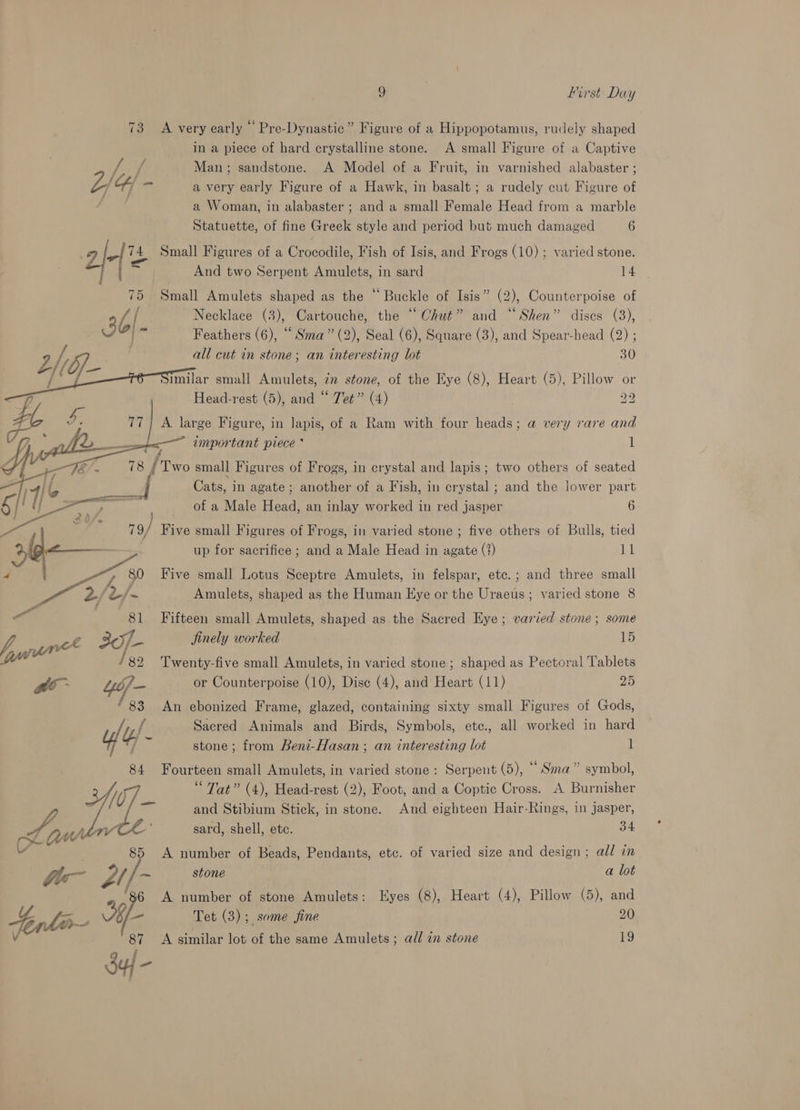 9 First Day
73 A very early “Pre-Dynastic” Figure of a Hippopotamus, rudely shaped
in a piece of hard crystalline stone. A small Figure of a Captive
Man; sandstone. A Model of a Fruit, in varnished alabaster;
a very early Figure of a Hawk, in basalt; a rudely cut Figure of
a Woman, in alabaster; and a small Female Head from a marble
Statuette, of fine Greek style and period but much damaged 6
74 Small Figures of a Crocodile, Fish of Isis, and Frogs (10); varied stone.
And two Serpent Amulets, in sard 14
75 Small Amulets shaped as the “Buckle of Isis” (2), Counterpoise of
Necklace (3), Cartouche, the “Chut” and “Shen” discs (3),
Feathers (6), “Sma” (2), Seal (6), Square (3), and Spear-head (2);
all cut in stone; an interesting lot 30
76 Similar small Amulets, in stone, of the Eye (8), Heart (5), Pillow or
Head-rest (5), and “Tet” (4) 22
77 A large Figure, in lapis, of a Ram with four heads; a very rare and
important piece 1
78 Two small Figures of Frogs, in crystal and lapis; two others of seated
Cats, in agate; another of a Fish, in crystal; and the lower part
of a Male Head, an inlay worked in red jasper 6
79 Five small Figures of Frogs, in varied stone; five others of Bulls, tied
up for sacrifice; and a Male Head in agate (?) 11
80 Five small Lotus Sceptre Amulets, in felspar, etc.; and three small
2/2/-
Amulets, shaped as the Human Eye or the Uraeus; varied stone 8
81 Fifteen small Amulets, shaped as the Sacred Eye; varied stone; some
30/-
finely worked 15
82 Twenty-five small Amulets, in varied stone; shaped as Pectoral Tablets
or Counterpoise (10), Disc (4), and Heart (11) 25
83 An ebonized Frame, glazed, containing sixty small Figures of Gods,
Sacred Animals and Birds, Symbols, etc., all worked in hard
stone; from Beni-Hasan; an interesting lot 1
84 Fourteen small Amulets, in varied stone: Serpent (5), “Sma” symbol,
“Tat” (4), Head-rest (2), Foot, and a Coptic Cross. A Burnisher
and Stibium Stick, in stone. And eighteen Hair-Rings, in jasper,
sard, shell, etc. 34
85 A number of Beads, Pendants, etc. of varied size and design; all in
stone a lot
86 A number of stone Amulets: Eyes (8), Heart (4), Pillow (5), and
Tet (3); some fine 20
87 A similar lot of the same Amulets; all in stone 19